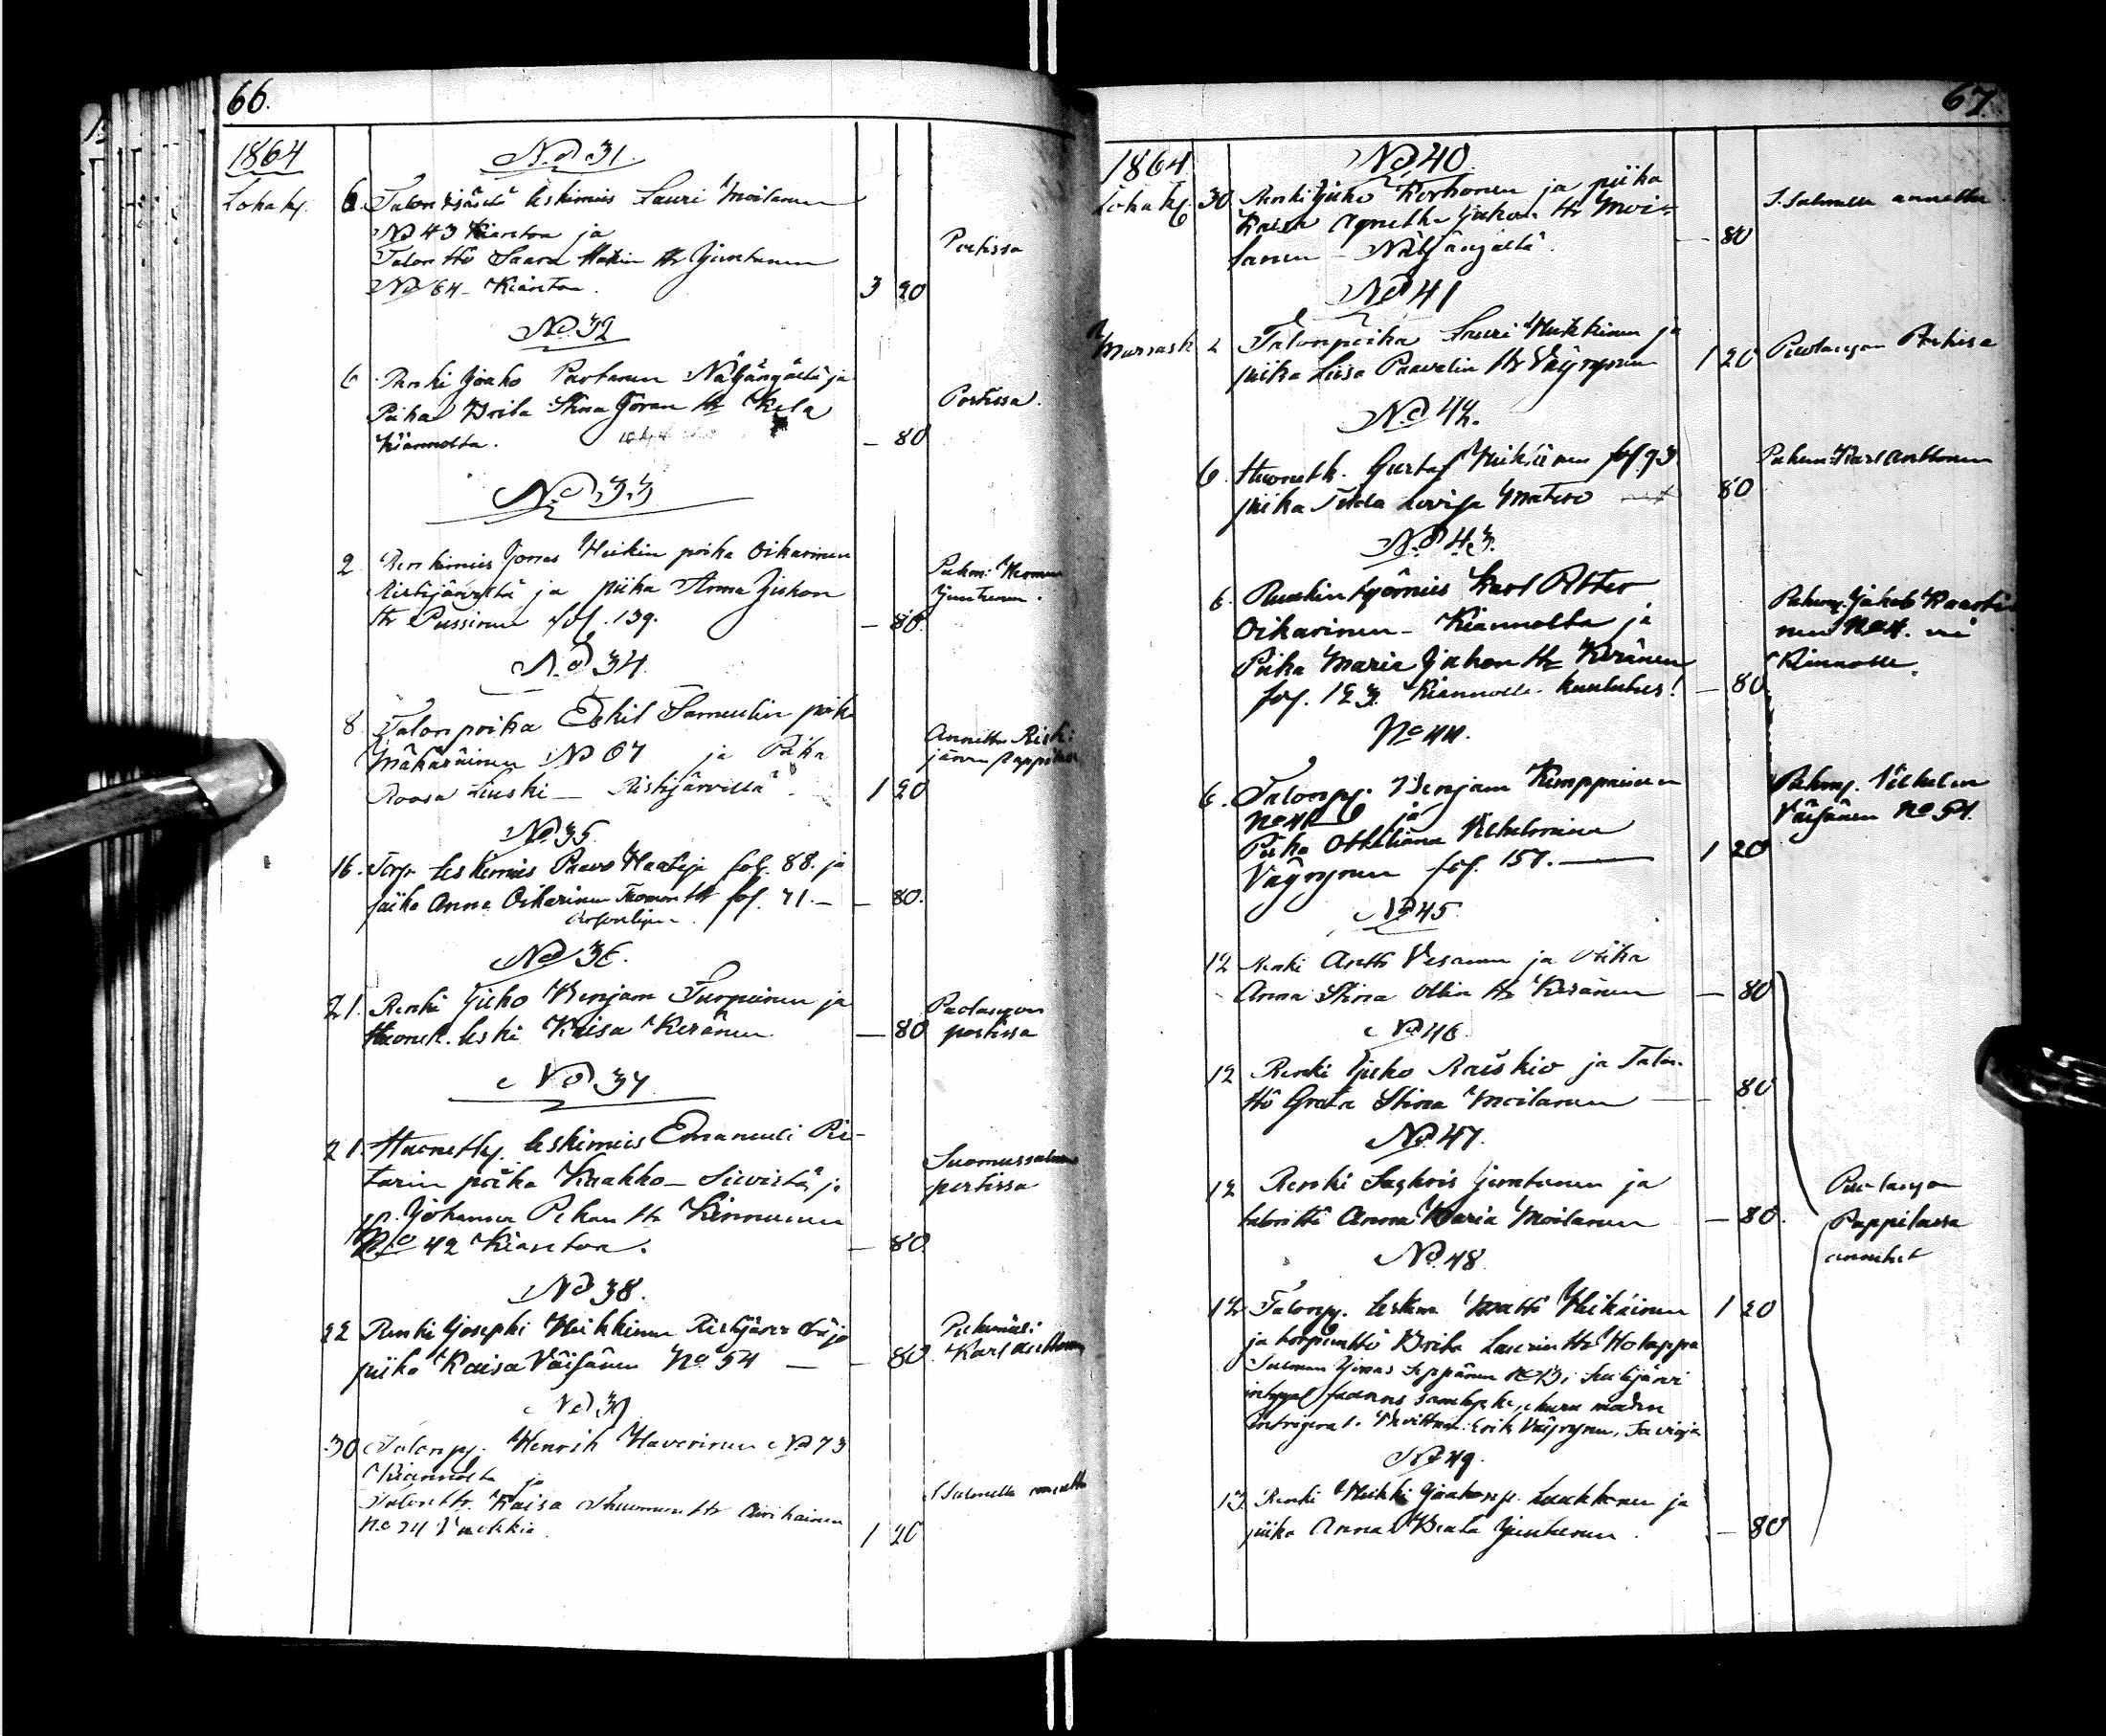 66.
1864
No 31.
Lokak. 6. Talon isäntä leskimies Lauri Moilanen
No 43 Kianton ja
Talon ttö Saara Matin tr Juntunen
No 64 Kianton. 3 20
Portissa
No 32
6 Renki Jaako Partanen Näljängältä ja
Piika Brita Stina Göran tr Kela
Kiannolta. — 80
Portissa.
No 33
2 Renkimies Jonas Heikin poika Oikarinen
Ristijärveltä ja piika Anna Juhon
tr Pussinen fol. 139. — 80.
Puhem: Herman
Juntunen.
No 34.
8 Talonpoika Eskil Samuelin poika
Mähäräinen No 67 ja Piika
Roosa Leuski — Ristijärviltä. 1 20
Annettu Risti-
järven pappilan
No 35
16. Torp. leskimies Paavo Haataja fol. 88. ja
piika Anna Oikarinen Thomon tr fol. 71. — — 80.
No 36.
21. Renki Juho Benjam Turpeinen ja
Huonek. leski Kaisa Keränen — 80
Puolangon
portissa
No 37
21. Huonethj. leskimies Emanueli Pie-
tarin poika Kaakko — Siivistä ja
p. Johanna Pekan tr Kinnunen
No 42 Kianton. — 80
Suomussalmen
portissa
No 38.
22 Renki Josephi Heikkinen Ristijärveltä ja
piika Kaisa Väisänen No 54 — — 80
Puhemies:
Karl Anttonen
No 39
30 Talonpj. Henrik Haverinen No 73
Kiannolta ja
Talon ttr. Kaisa tr
No 24 1 20
S Salmella annettu
67.
1864
No 40.
Lokak. 30 Renki Juho Korhonen ja piika
Kaisa Agnetha Juhon tr Moi-
lanen — Näljängältä. — 80
S. Salmella annettu
No 41
Marrask. 2 Talonpoika Lauri Heikkinen ja
piika Liisa Paavalin tr Väyrynen 1 20
Puolangan Portissa
No 42.
6. Huonethj. Gustaf Heikkinen fol 93
piika Tilda Lovisa Matero 80
Puhem: Karl Anttonen
No 43.
6. Ruukin työmies Karl Petter
Oikarinen — Kiannolta ja
Piika Maria Juhon tr Keränen
fol. 123. Kiannolle kuulutus! — 80.
Puhemj. Jakob Kaarti-
nen No 4. vei
Kiannolle.
No 44.
6. Talonpj. Benjam Kemppainen
No 46 ja
Piika Ottiliana Vilhelmina
Väyrynen fol. 157. — 1 20
Puhemj. Vilhelm
Väisänen No 54.
No 45
12 Renki Antti Vesanen ja Piika
Anna Stina Ollin tr Keränen — 80
No 46
12 Renki Juho Raiskio ja Talon.
ttö Greta Stina Moilanen — 80
No 47.
12 Renki Sachris Juntunen ja
talonttö Anna Maria Moilanen — 80.
Puolangon
Pappilassa
annetut
No 48
12 Talonpj. leskim Matti Heikkinen 1 20
ja torpantttö Brita Laurin tr Holappa
Jonas Seppänen No 13
Erik Väyrynen,
No 49.
13 Renki Heikki Jaakonp. Luukkonen ja
piika Anna Beata Juntunen. — 80